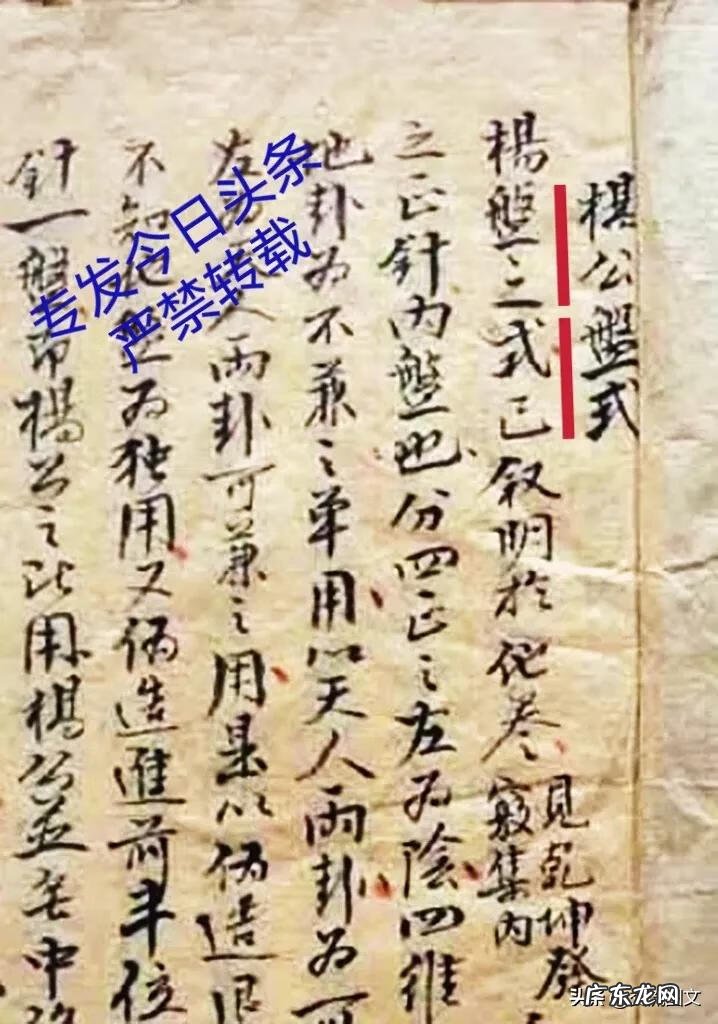 楊公盤式
楊盤之式已叙明於他卷見乾坤發
竅集內
之正針內盤也分四正之左为陰四維
地卦为不兼之单用以天人兩卦为可
左为天人兩卦可兼之用是以偽造退
不知他為独用又偽造進前半位
針一盤即楊公之此用楊公並無中
专发今日头条
严禁转载
头条
东龙网
文